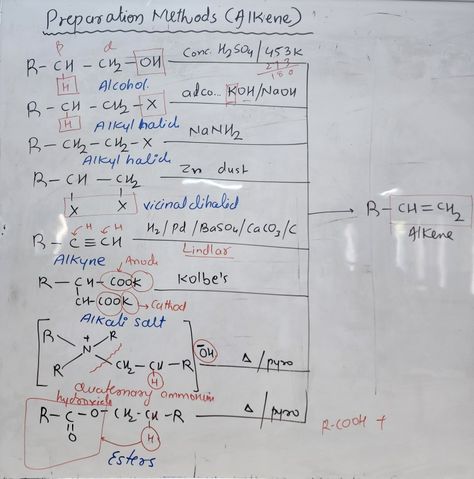 Preparation Methods (Alkene)
β α
R-CH-CH₂-OH Conc. H₂SO₄/453K
H 273
180
Alcohol
R-CH-CH₂-X alco... KOH/NaOH
H
Alkyl halid
R-CH₂-CH₂-X NaNH₂
Alkyl halid
R-CH-CH₂ Zn dust
X X vicinal dihalid
R-CH=CH₂
Alkene
H H
R-C≡CH H₂/Pd/BaSO₄/CaCO₃/C
Lindlar
Alkyne Anode
R-CH-COOK Kolbe's
CH-COOK → Cathod
Alkali salt
R + R
N ŌH
R CH₂-CH-R Δ/pyro
H
quaternary ammonium
hydroxide
R-C-O-CH₂-CH-R Δ/pyro
O H
R-COOH +
Esters